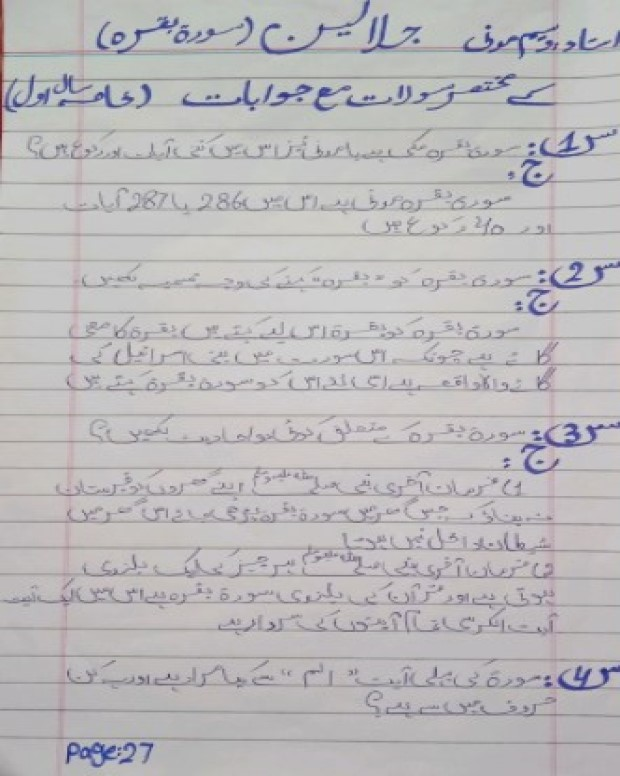 استاد وسیم مدنی جلالین (سورۃ بقرہ)
کے مختصر سوالات مع جوابات (خامسہ سال اول)
س1: سورۃ بقرہ مکی ہے یا مدنی نیز اس میں کتنی آیات اور رکوع ہیں؟
ج:
سورۃ بقرہ مدنی ہے اس میں 286 یا 287 آیات
اور 40 رکوع ہیں
س2: سورۃ بقرہ کو "بقرہ" کہنے کی وجہ تسمیہ لکھیں
ج:
سورۃ بقرہ کو بقرۃ اس لیے کہتے ہیں بقرۃ کا معنی
گائے ہے چونکہ اس سورت میں بنی اسرائیل کی
گائے والا واقعہ ہے اس لئے اس کو سورۃ بقرۃ کہتے ہیں
س3: سورۃ بقرہ کے متعلق کوئی دو احادیث لکھیں؟
ج:
1) فرمان آخری نبی صلی اللہ علیہ وسلم اپنے گھروں کو قبرستان
نہ بناؤ جس گھر میں سورۃ بقرہ پڑھی جائے اس گھر میں
شیطان داخل نہیں ہوتا
2) فرمان آخری نبی صلی اللہ علیہ وسلم ہر چیز کی ایک بلندی
ہوتی ہے اور قرآن کی بلندی سورۃ بقرہ ہے اس میں ایک آیت
آیت الکرسی تمام آیتوں کی سردار ہے
س4: سورۃ کی پہلی آیت "الم" سے کیا مراد ہے اور یہ کن
حروف میں سے ہے؟
Page:27